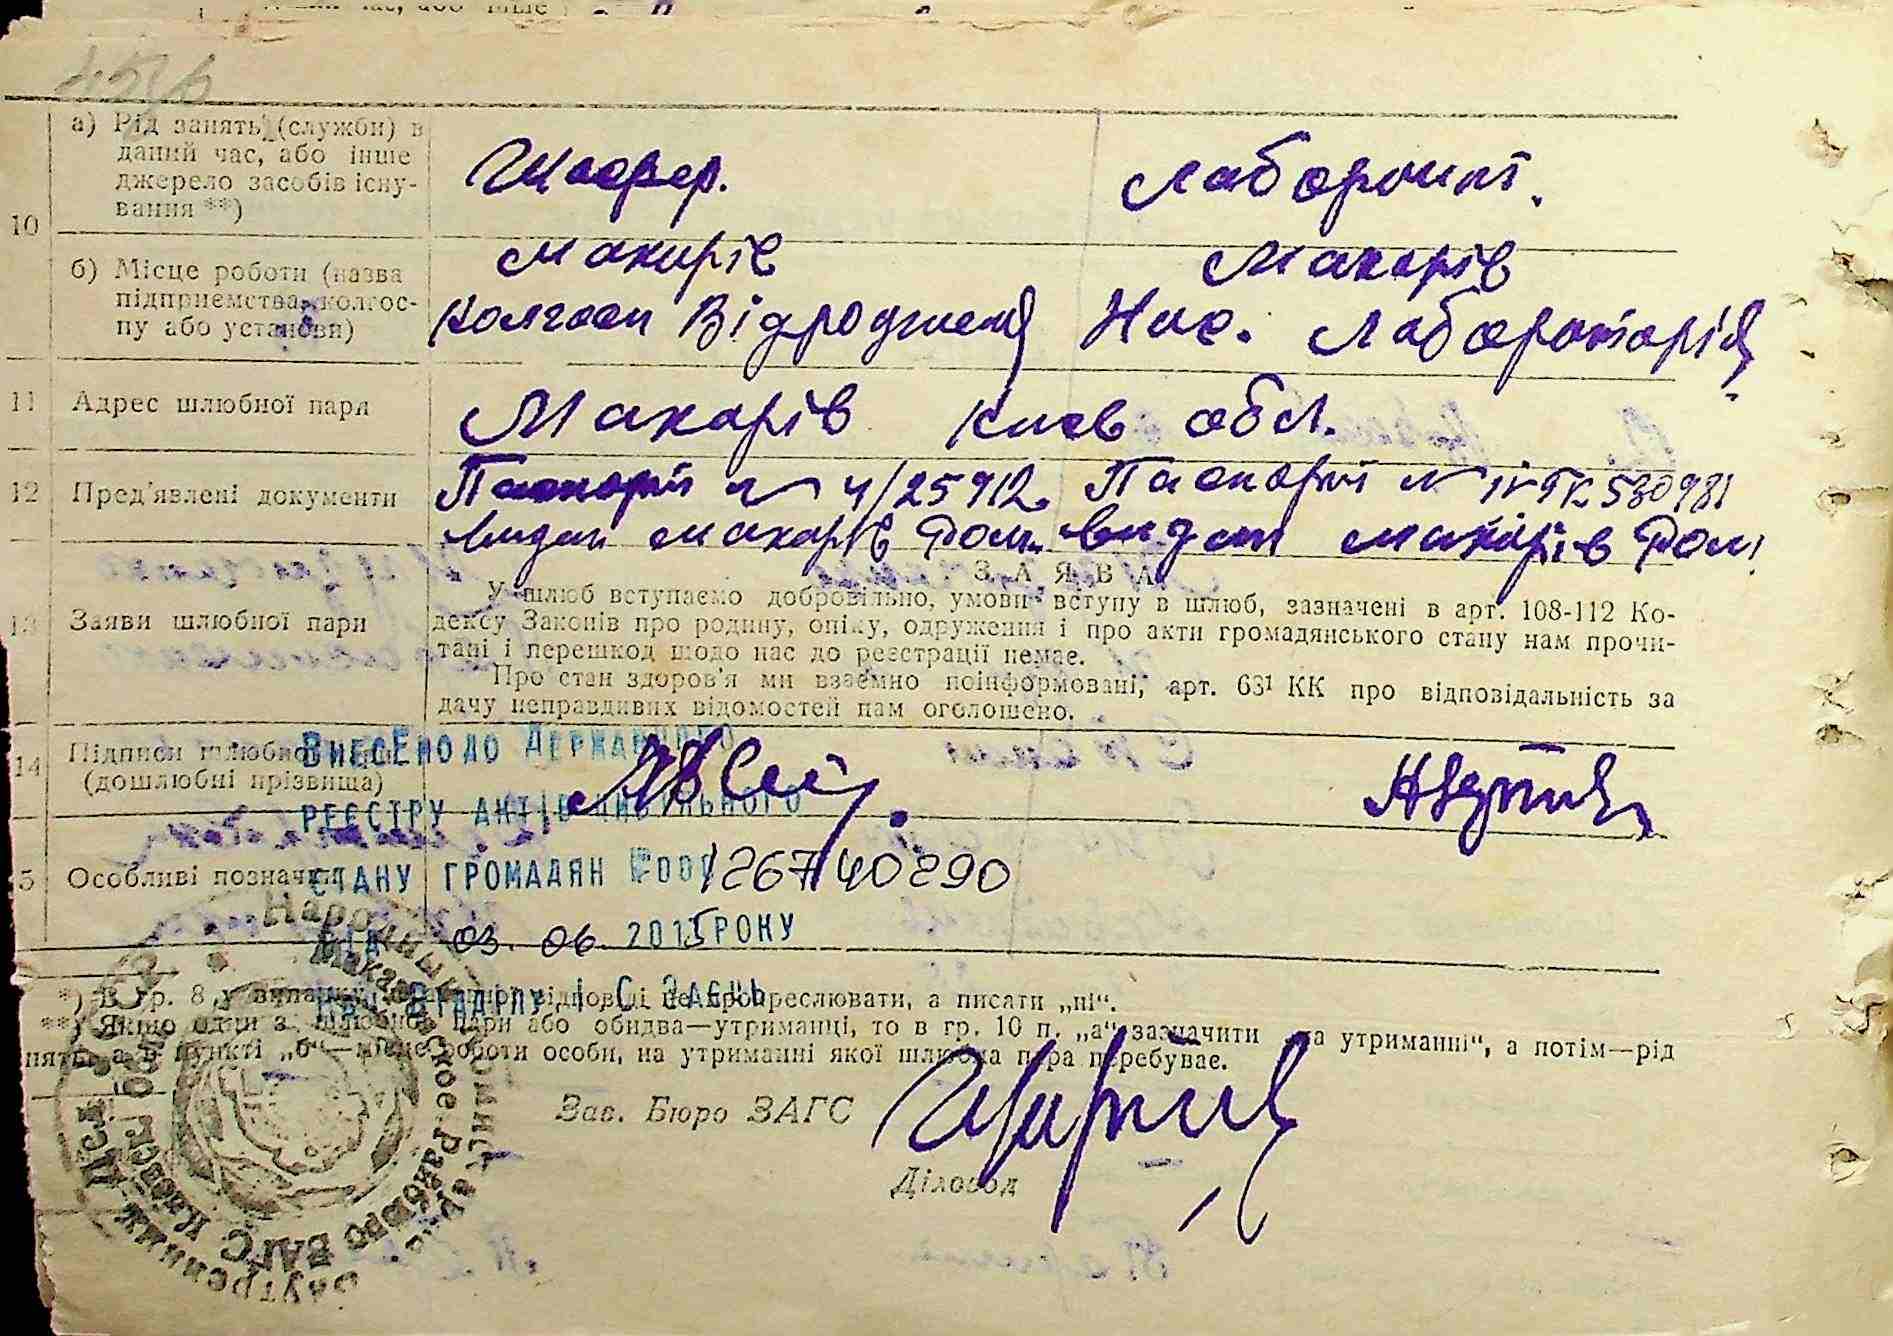 час, або інше
10
а) Рід занять (служби) в
даний час, або інше
джерело засобів існу-
вання **)
Шофер.
Лаборант.
б) Місце роботи (назва
підприємства, колгос-
пу або установи)
Макарів
Колгосп Відродження
Макарів
Лабораторія
11
Адрес шлюбної пари
Макарів Києв обл.
12
Пред'явлені документи
Паспорт № 4/25912.
видан Макарів
Паспорт № 530981
видан Макарів
13
Заяви шлюбної пари
ЗАЯВА
У шлюб вступаємо добровільно, умови вступу в шлюб, зазначені в арт. 108-112 Ко-
дексу Законів про родину, опіку, одруження і про акти громадянського стану нам прочи-
тані і перешкод щодо нас до реєстрації немає.
Про стан здоров'я ми взаємно поінформовані, арт. 63¹ КК про відповідальність за
дачу неправдивих відомостей нам оголошено.
14
Підписи шлюбної пари
(дошлюбні прізвища)
ВНЕСЕНО ДО ДЕРЖАВНОГО
РЕЄСТРУ АКТІВ ЦИВІЛЬНОГО
15
Особливі позначки
СТАНУ ГРОМАДЯН 126740290
ВІД 03. 06. 2015 РОКУ
НАЧ. ВІДДІЛУ І.С. ЗАЄЦЬ
*) В гр. 8 у випадку відповіді не прокреслювати, а писати „ні“.
**) Якщо один з шлюбної пари або обидва—утриманці, то в гр. 10 п. „а“ зазначити „на утриманні“, а потім—рід
занять, а в пункті „б“—місце роботи особи, на утриманні якої шлюбна пара перебуває.
Зав. Бюро ЗАГС
Діловод
Народный комиссариат внутренних дел УССР
Макаровское Райбюро ЗАГС Киевской области